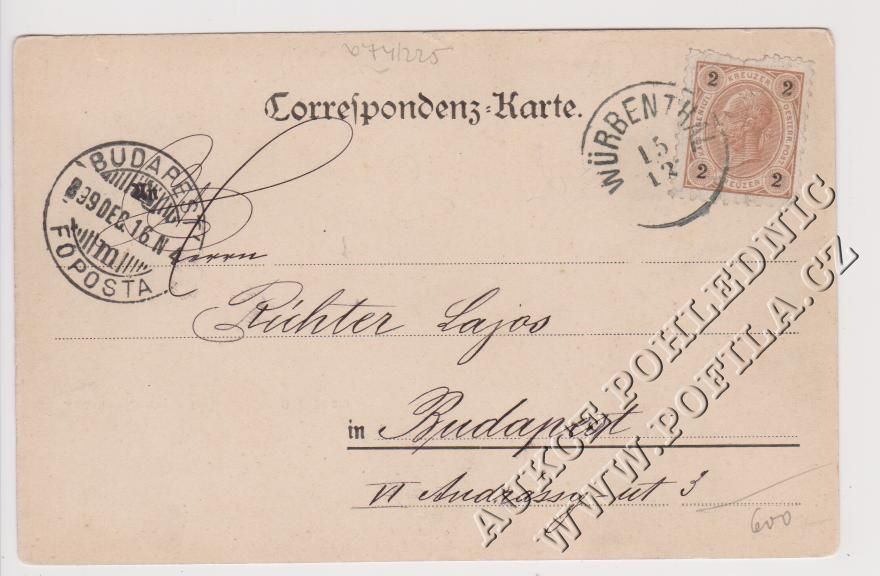 674/225
Correspondenz-Karte.
2 KREUZER 2
2 KREUZER 2
WÜRBENTHAL
15
12
BUDAPEST
899 DEC. 16. N
FŐPOSTA
Herrn
Richter Lajos
in Budapest
VI Andrássy út 3
600
AUKCE POHLEDNIC
WWW.POFILA.CZ